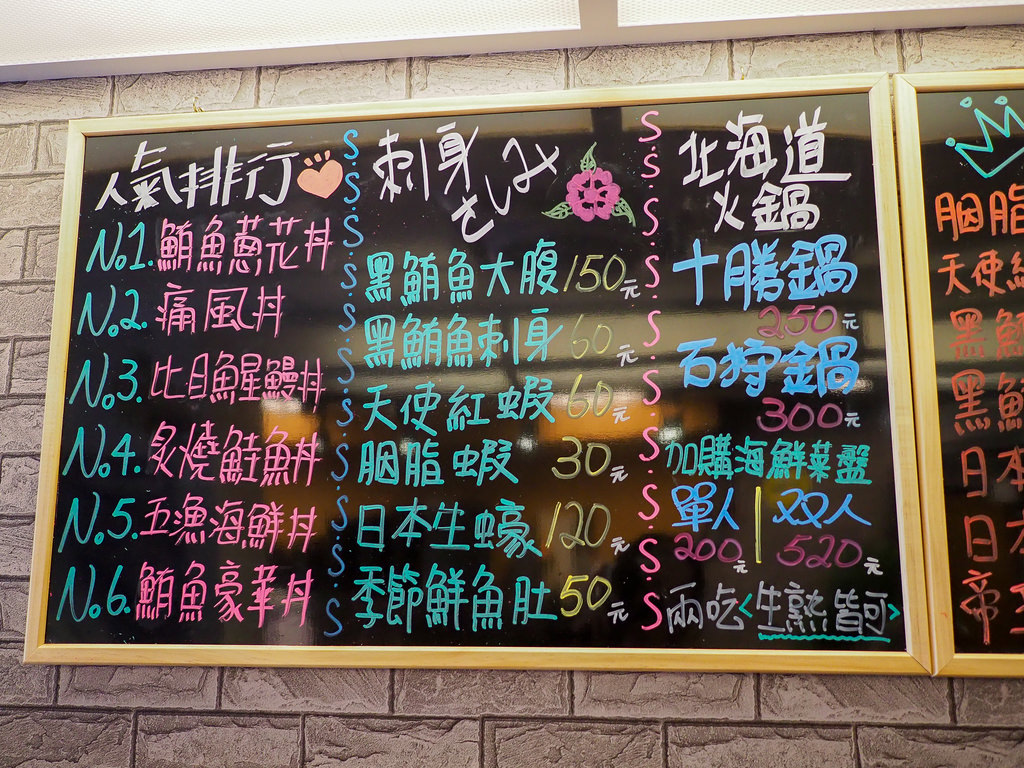 人氣排行
No.1. 鮪魚蔥花丼
No.2. 痛風丼
No.3. 比目魚星鰻丼
No.4. 炙燒鮭魚丼
No.5. 五漁海鮮丼
No.6. 鮪魚豪華丼
刺身
さしみ
黑鮪魚大腹150元
黑鮪魚刺身60元
天使紅蝦60元
胭脂蝦30元
日本生蠔120元
季節鮮魚肚50元
北海道
火鍋
十勝鍋
250元
石狩鍋
300元
加購海鮮菜盤
單人|双人
200元 520元
兩吃<生熟皆可>
胭脂
天使紅
黑鮪
黑鮪
日本
日本
帝王